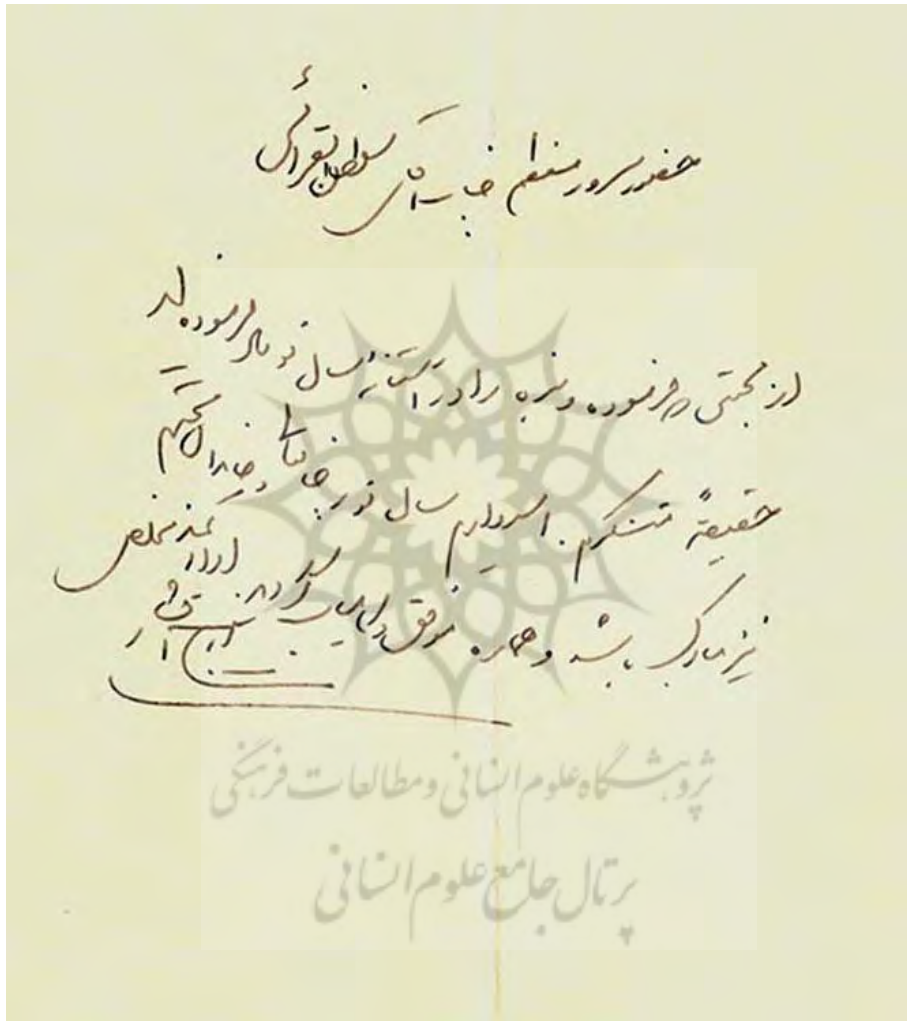 حضور سرور معظم جناب آقای سلطان القرائی
از محبتی که فرموده و بنده را در آستانه سال نو یاد فرموده اید
حقیقةً متشکرم. امیدوارم سال نو بر جنابعالی و خاندان محترم
نیز مبارک باشد و همواره موفق و کامیاب
ارادتمند مخلص
پژوهشگاه علوم انسانی و مطالعات فرهنگی
پرتال جامع علوم انسانی